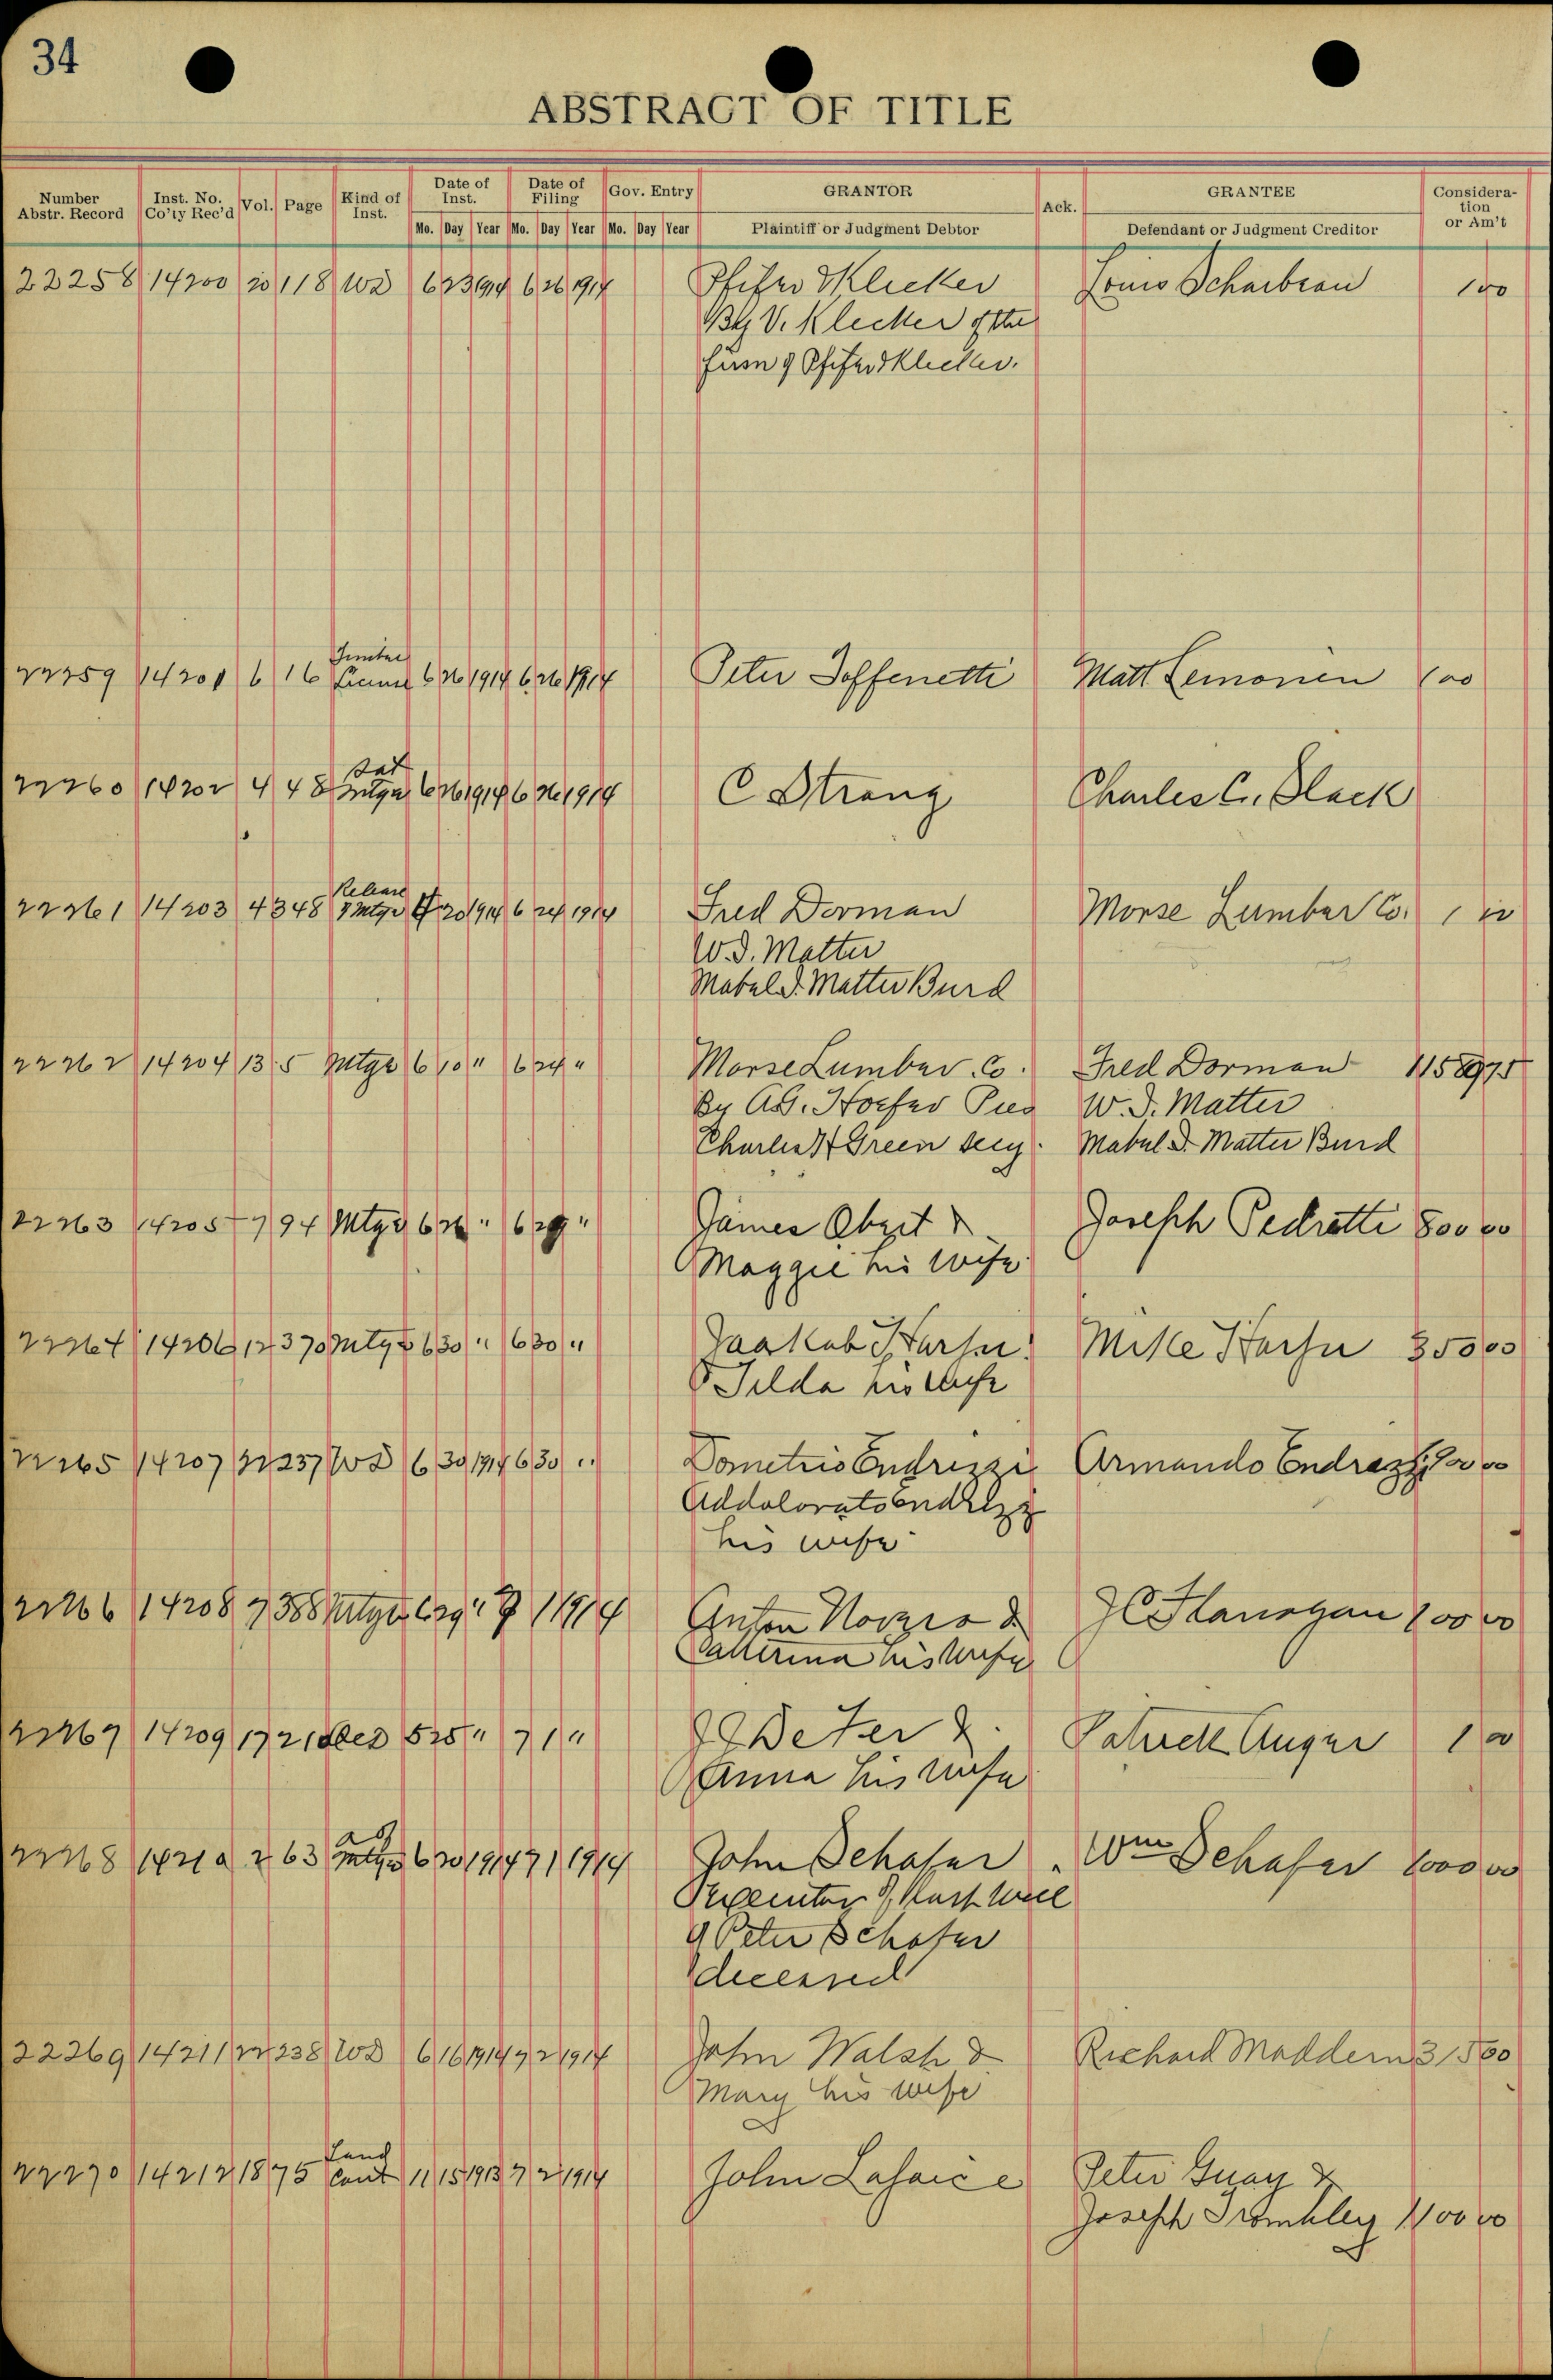 34
ABSTRACT OF TITLE
Number Abstr. Record Inst. No. Co'ty Rec'd Vol. Page Kind of Inst. Date of Inst. Date of Filing Gov. Entry GRANTOR Ack. GRANTEE Consideration or Am't
Mo. Day Year Mo. Day Year Mo. Day Year Plaintiff or Judgment Debtor Defendant or Judgment Creditor
22258 14200 20 118 WD 6 23 1914 6 26 1914 Pfifer & Klecker Louis 100
By V. Klecker of the
firm of Pfifer & Klecker.
22259 14201 6 16 Timber License 6 26 1914 6 26 1914 Peter Toffenetti Matt Lemonen 100
22260 14202 4 48 Sat Mtge 6 26 1914 6 26 1914 C Strang Charles C. Black
22261 14203 4 348 Release of Mtge 20 1914 6 24 1914 Fred Dorman Morse Lumber Co. 1 00
W. D. Matter
Mabel D. Matter Burd
22262 14204 13 5 Mtge 6 10 " 6 24 " Morse Lumber Co. Fred Dorman 11589 75
By A.G. Hoefer Pres W. D. Matter
Charles H Green Secy. Mabel D. Matter Burd
22263 14205 7 94 Mtge 6 26 " 6 29 " James Obzit & Joseph Pedretti 800 00
Maggie his wife
22264 14206 12 370 Mtge 6 30 " 6 30 " Jaakab Harju Mike Harju 350 00
& Tilda his wife
22265 14207 22 237 WD 6 30 1914 6 30 " Dometrio Endrizzi Armando
his wife
22266 14208 7 388 Mtge 6 29 " 7 1 1914 Anton & Flanagan
Catterina his wife
22267 14209 17 21 Deed 5 25 " 7 1 " DeTer & Patrick Auger 1 00
Anna his wife
22268 14210 2 63 Mtge 6 20 1914 7 1 1914 John Schafer Wm Schafer 1000 00
Executor of Last Will
of Peter Schafer
deceased
22269 14211 22 238 WD 6 16 1914 7 2 1914 John Walsh & Richard Maddern 315 00
Mary his wife
22270 14212 18 75 Land Cont 11 15 1913 7 2 1914 John Lafaice Peter Guay &
Joseph Trombley 1100 00